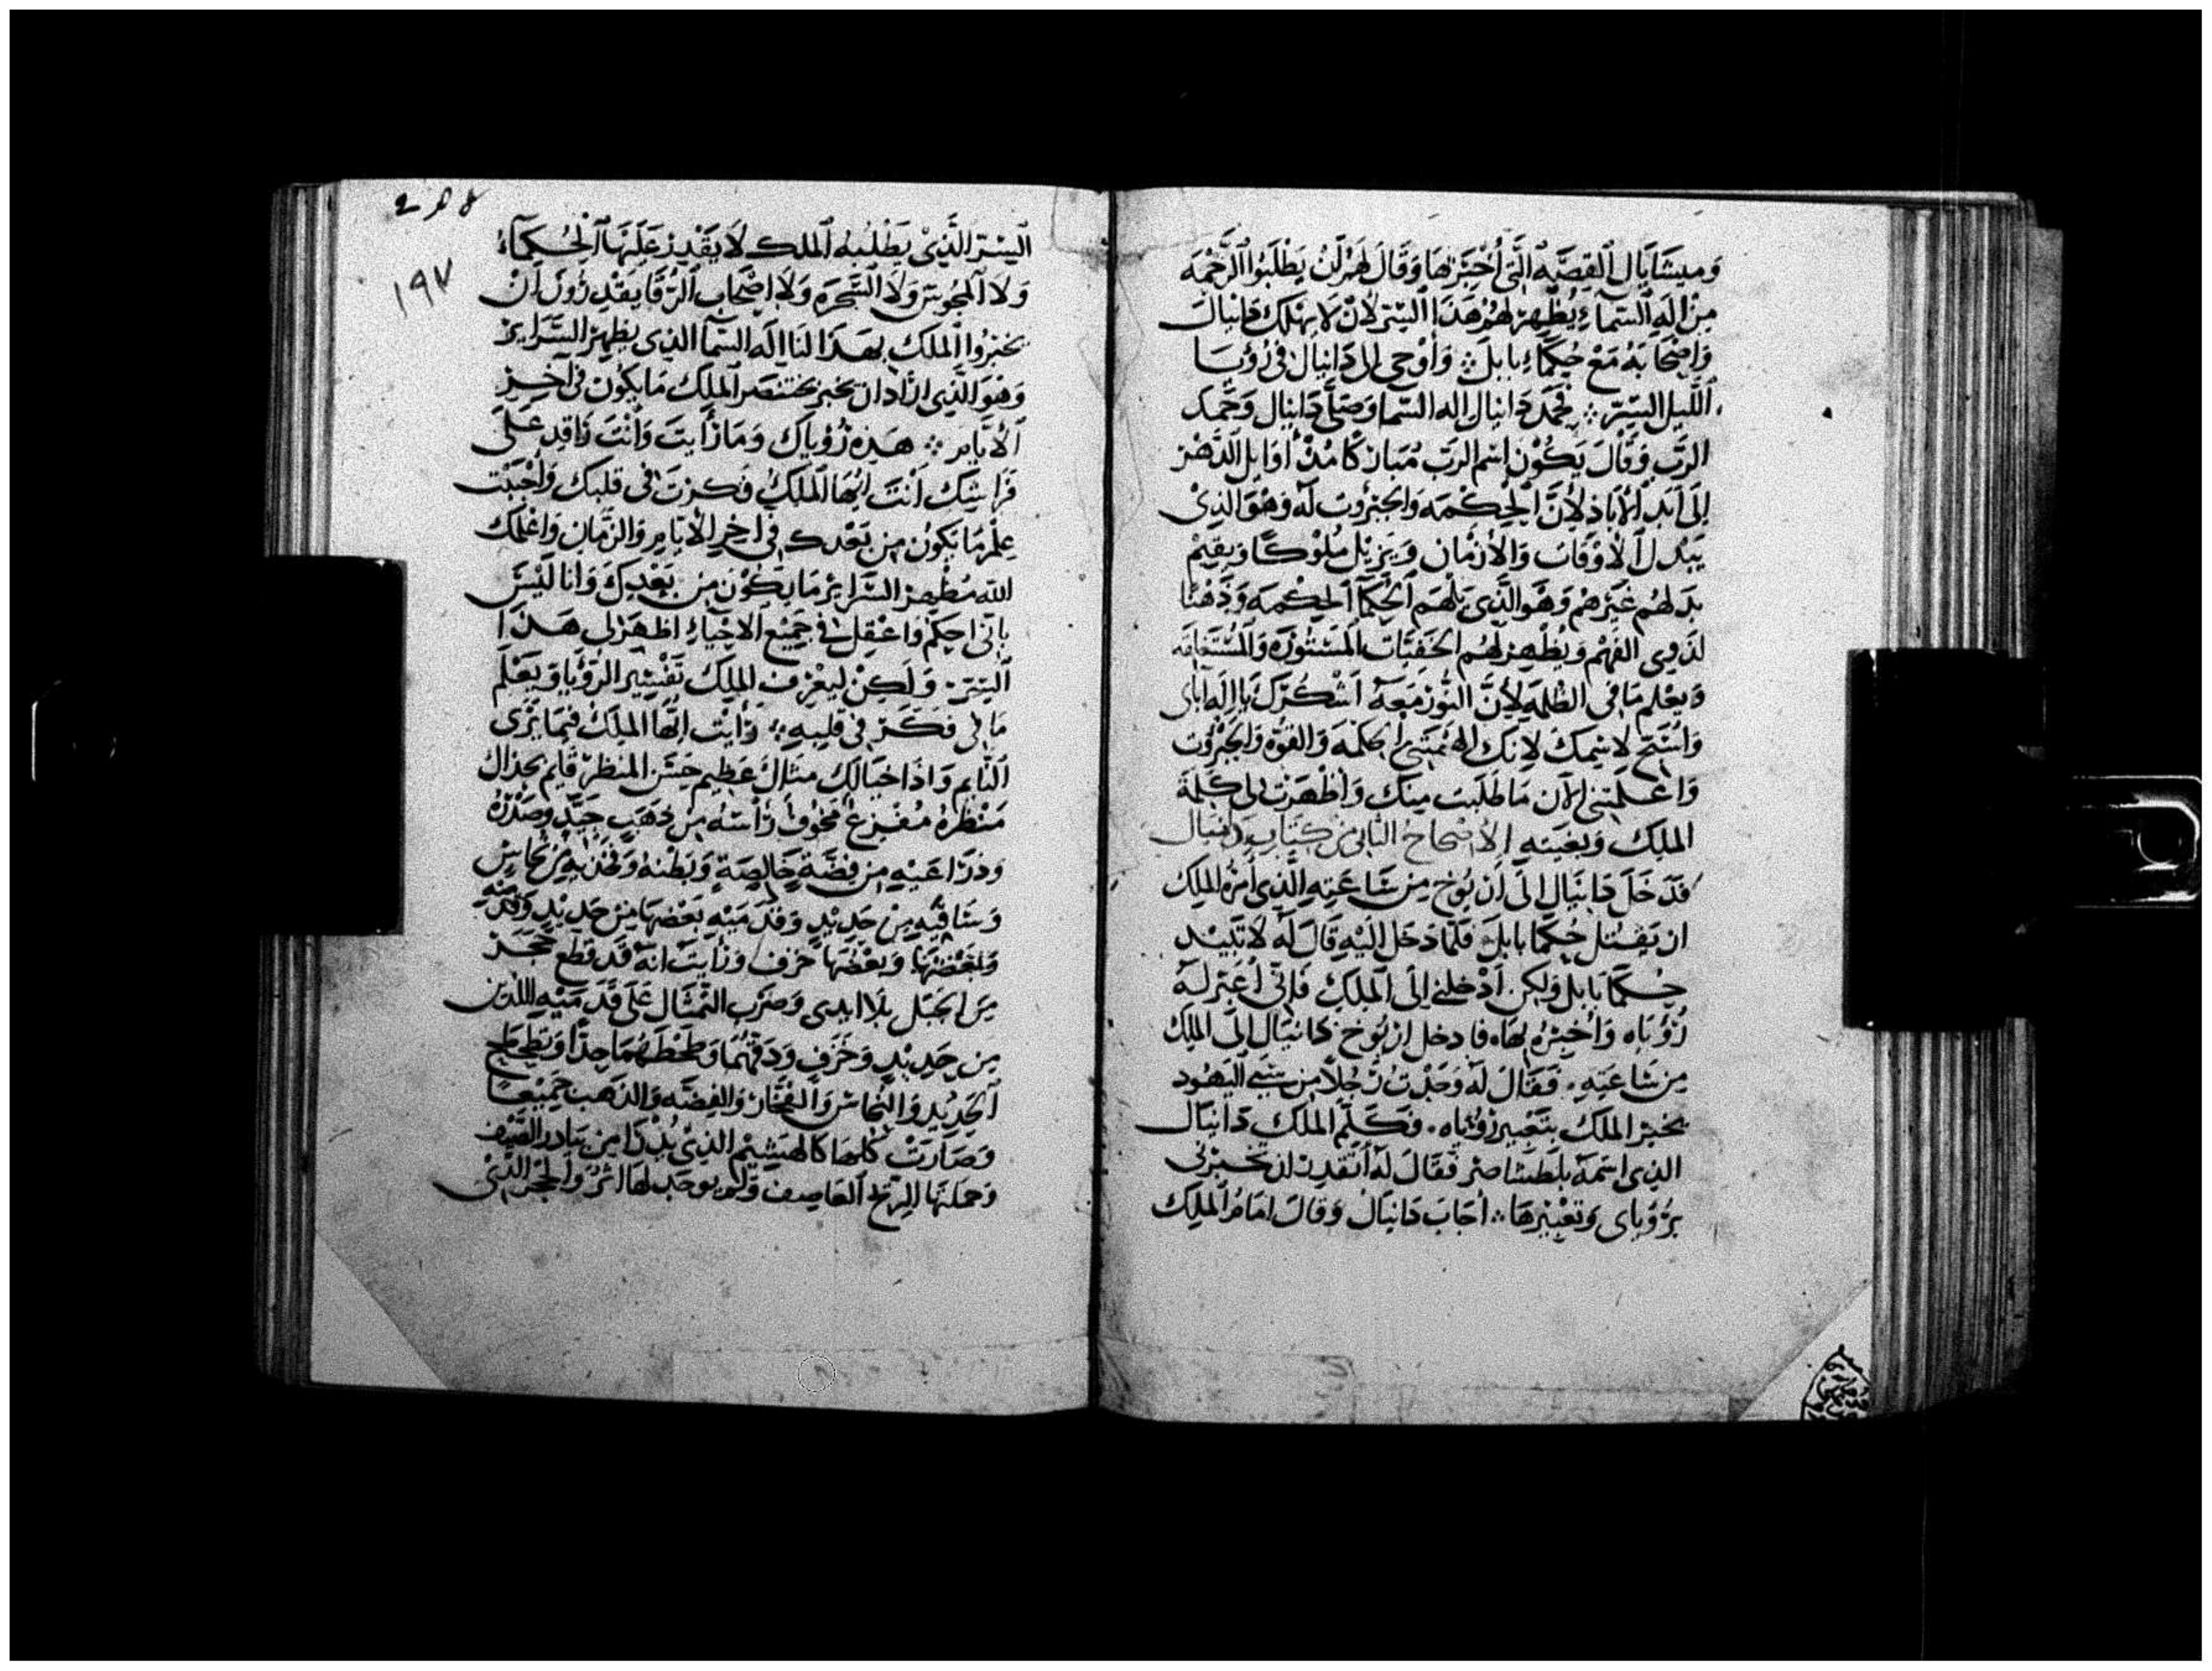 وَميشَايَال ٱلقِصَّه ٱلتَّى أُخبَرَ بهَا وَقَالَ لهُمْ لَنْ يَطْلبُوا الرَّحْمَه
مِنْ اِلَهِ ٱلسَّمآءِ يُظْهِرْ لهُمْ هَذَا ٱلسِّرّ لأنْ لا يَهْلك دَانيَالَ
وَاصْحَابَهُ مَعْ حُكَمَاءِ بَابلَ ۞ وَاوْحِى الى دَانيَال فى رُؤيَا
ٱللَّيل السِّرّ ۞ فحمَد دَانيَال اله السَّما وَصَلَّى دَانيَال وَحَمَد
الربّ وَقَالَ يَكُوْن اسْم الربّ مُبَارَكًا مُنْذُ أوَايل الدَّهْر
إلى أبَد الأبَاد لأنَّ الحِكْمَه وَالجَبَرُوت لَه وَهُوَ الذِى
يَبْدل ٱلأوْقَات وَالأزْمَان وَيَزِيْل مُلُوْكًا وَيقِيْم
بدَلهُم غَيْرهمْ وَهُوَ الذَّى يَلْهَم ٱلحُكَمآ ٱلحِكْمَه وَذهْنًا
لذَوِى الفَهْم وَيُظْهِرْ لهُم الخَفيَّات المَسْتُوْرَه وَالمُسْتَغلقه
وَيعْلم مَا فى الظُّلمَه لأنَّ النُّوْر مَعَهُ اَشْكُرَكَ يَا اِلَه اباى
وَاسَبّح لاسْمك لانكَ اله ... الحكمَه وَالقوُّه وَالجَبَروت
وَاعْلَمْتَنى الآن مَا طَلَبت مِنكَ وَاظْهَرْت لى كَلمَة
الملِكِ وَبغيَته الأصْحَاحُ الثَّانى مِنْ كِتَاب دَانيَال
فَدَخَلَ دَانيَال إلَى أرْيُوخ مِن سَاعَتِهِ الَّذِى أمَرهُ الملِكِ
ان يَقْتل حُكَمَا بَابلَ فَلمَّا دَخَل اليْهِ قَالَ لَهُ لا تَبيْد
حُكَمَا بَابل وَلكِن اَدْخلنى إلَى الملِكِ فَإنّى أُعَبّر لهُ
رُؤْيَاه وَأُخبِرهُ بهَا فادخل اريُوخ دَانيَال إلَى الملِكِ
مِن سَاعَتِهِ ۰ فقَالَ لَهُ وَجَدْتُ رَجُلاً مِن سَبْى اليَهُود
يخبر الملك بتَعْبِير رُؤيَاه ۰ فكَلّم الملك دَانيَال
الذِى اسْمهُ بلطشَاصَر فقَالَ لَهُ أَتقْدِر ان تخبرْنى
برُؤيَاى وَتعْبيْرهَا ۞ أجَابَ دَانيَالُ وَقَالَ امَامُ المَلِك
٢٣٤
١٩٧
ٱلسِّرّ الَّذِىْ يَطْلبُهُ ٱلملك لاَ يَقْدِرْ عَليْهَا ٱلحُكمآءُ
وَلا ٱلمجُوسَ وَلا ٱلسَّحَرَه وَلا اصْحَاب ٱلرُّقَا يَقْدِرُوْنَ أنْ
يخبرُوا ٱلملك بهَذا لنَا اله السَّمآ الذِى يظهر السَّرَايرْ
وَهوَ الَّذِى ارَادَ ان يخبر بختنصَر الملِكْ مَا يكُوْن فى آخِر
ٱلأيَّام ۞ هَذِهِ رُؤيَاكَ وَمَا رَأيتَ وَأنتَ رَاقِد عَلَى
فرَاشِكَ أنتَ ايّهَا الملِكُ فَكرْتَ فى قلبكَ وَأحْبَبْت
عِلْم مَا يَكُوْن مِن بَعْدك فى آخِر الأيّام وَالزَّمَان وَاعْلَمَك
الله مُظْهر السَّرَايرْ مَا يَكُوْن مِن بَعْدِك وَانا ليْسَ
بانّى احِكَمْ وَاعْقِل فى جَميْع الأحْيَاءِ اظهَرْ لى هَذا
ٱلسِّرّ ۰ وَلَكِنْ ليعْرف الملِك تفْسِير الرُّؤْيَا وَيَعْلَم
مَا لى فكَرْ فى قلبِهِ ۞ رَأيْت ايّهَا الملِكُ فيمَا يَرَى
النَّايم وَاذَا خيَالك مثَالٌ عَظِيم حسَن المنظر قَايم بحذاك
مَنْظرُهُ مُفْزِعٌ مخُوف رَأسُهُ مِن ذهَب جَيّد وَصَدْرهُ
وَذرَاعَيْهِ مِن فضَّة خَالِصَةٍ وَبَطْنهُ وَفخْذَيْهِ مِن نحَاسٍ
وَسَاقيْهِ مِن حَدِيْدٍ وَقدَمَيْهِ بَعْضهَا مِن حَدِيْدٍ
وَبعْضهَا خَزف ۰ وَرَأيتَ انّهُ قدْ قطع حَجَر
مِن الجَبَل بلا ايدى وَضرَب التّمثَال عَلَى قدَمَيْهِ اللَّذين
مِن حَدِيْدٍ وَخَزَفٍ وَدَقّهُمَا وَطَحْطَحْهُمَا جدًّا وَتطحْطح
ٱلحَدِيْد وَالنُّحَاس وَالفخَّار وَالفِضَّه وَالذهَب جَميْعًا
وَصَارَتْ كُلّهَا كالهَشِيْم الذِى يُذْرَا مِن بيَادر الصَّيْف
وَحملَتهَا الرِّيْح العَاصِف وَلم يوجَد لهَا اثرٌ وَالحجر الَّذِى